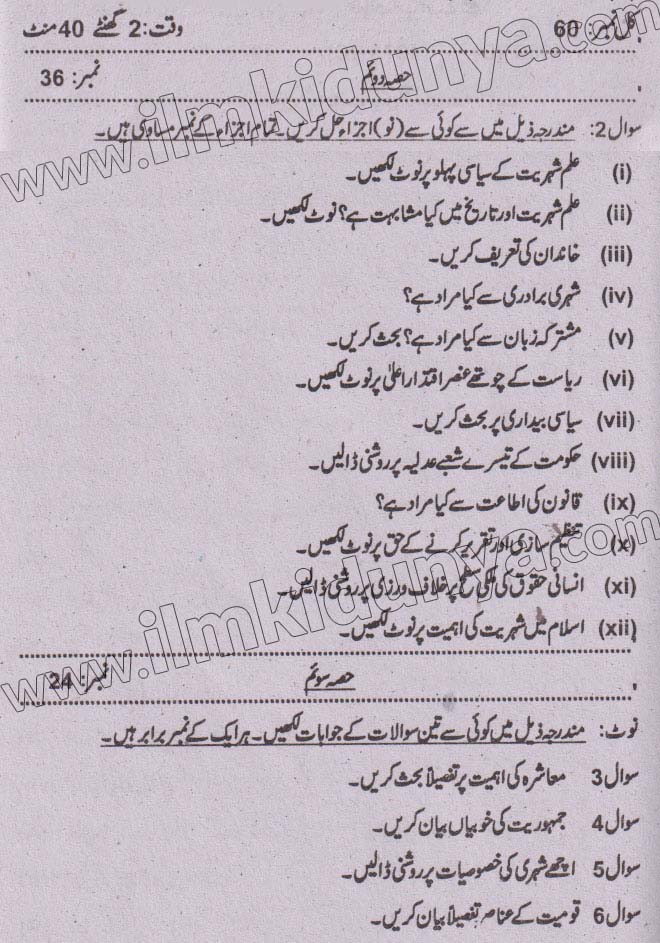 کل نمبر: 60 وقت: 2 گھنٹے 40 منٹ
حصہ دوئم نمبر: 36
سوال 2: مندرجہ ذیل میں سے کوئی سے (نو) اجزاء حل کریں۔ تمام اجزاء کے نمبر مساوی ہیں۔
(i) علم شہریت کے سیاسی پہلو پر نوٹ لکھیں۔
(ii) علم شہریت اور تاریخ میں کیا مشابہت ہے؟ نوٹ لکھیں۔
(iii) خاندان کی تعریف کریں۔
(iv) شہری برادری سے کیا مراد ہے؟
(v) مشترکہ زبان سے کیا مراد ہے؟ بحث کریں۔
(vi) ریاست کے چوتھے عنصر اقتدار اعلیٰ پر نوٹ لکھیں۔
(vii) سیاسی بیداری پر بحث کریں۔
(viii) حکومت کے تیسرے شعبے عدلیہ پر روشنی ڈالیں۔
(ix) قانون کی اطاعت سے کیا مراد ہے؟
(x) تنظیم سازی اور تقریر کرنے کے حق پر نوٹ لکھیں۔
(xi) انسانی حقوق کی ملکی سطح پر خلاف ورزی پر روشنی ڈالیں۔
(xii) اسلام میں شہریت کی اہمیت پر نوٹ لکھیں۔
حصہ سوئم نمبر: 24
نوٹ: مندرجہ ذیل میں کوئی سے تین سوالات کے جوابات لکھیں۔ ہر ایک کے نمبر برابر ہیں۔
سوال 3 معاشرہ کی اہمیت پر تفصیلاً بحث کریں۔
سوال 4 جمہوریت کی خوبیاں بیان کریں۔
سوال 5 اچھے شہری کی خصوصیات پر روشنی ڈالیں۔
سوال 6 قومیت کے عناصر تفصیلاً بیان کریں۔
www.ilmkidunya.com
www.ilmkidunya.com